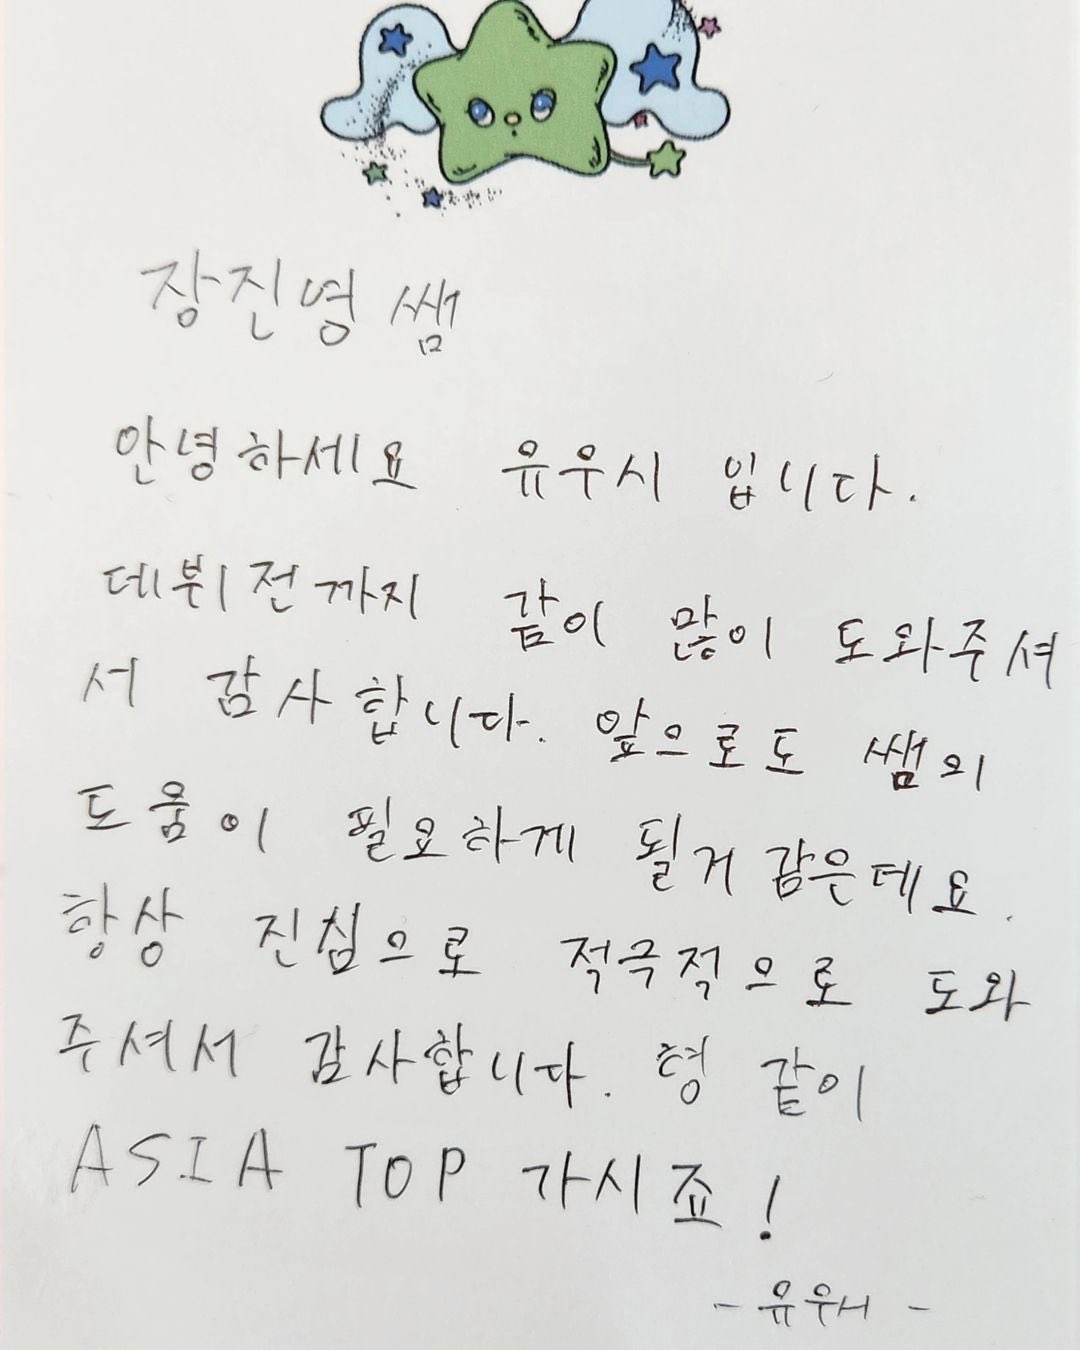 장진영 쌤
안녕하세요 유우시 입니다.
데뷔전까지 같이 많이 도와주셔
서 감사합니다. 앞으로도 쌤의
도움이 필요하게 될거 같은데요.
항상 진심으로 적극적으로 도와
주셔서 감사합니다. 형 같이
ASIA TOP 가시죠!
- 유우시 -